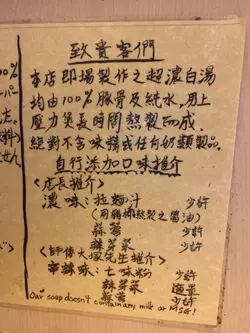 致貴客們
本店即場製作之超濃白湯
均由100%豚骨及純水,用上
壓力煲長時間熬製而成.
絕對不含味精或任何奶類製品。
自行添加口味推介
<店長推介>
濃味:拉麵汁 少許
(用豬骨熬製之醬油)
蒜蓉 少許
辣菜 少許
<師傅大塚先生推介>
辛辣味:七味粉 少許
辣菜 適量
蒜蓉 少許
Our soup doesn't contain any milk or MSG!
00%
ーパー
た。
料)
ません